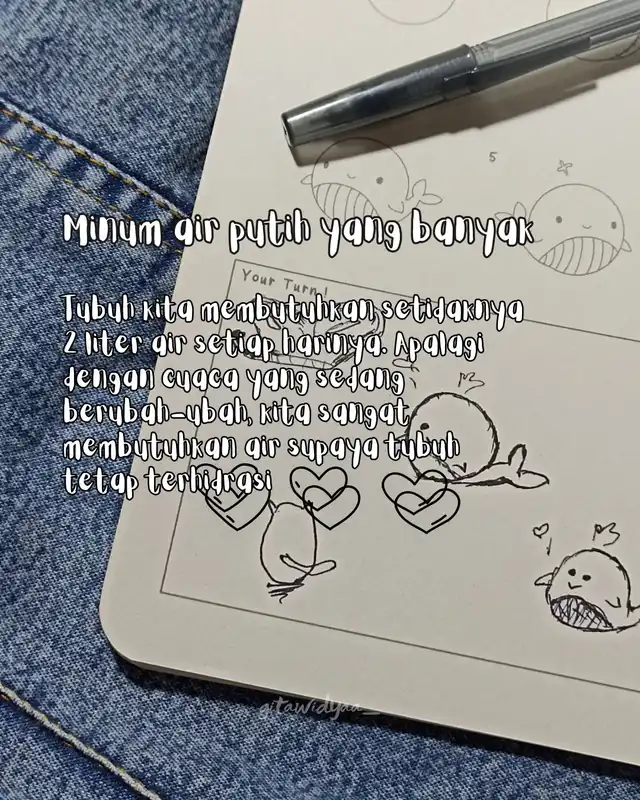 5
Minum air putih yang banyak
Your Turn!
Tubuh kita membutuhkan setidaknya
2 liter air setiap harinya. Apalagi
dengan cuaca yang sedang
berubah-ubah, kita sangat
membutuhkan air supaya tubuh
tetap terhidrasi
gitawidyaa_